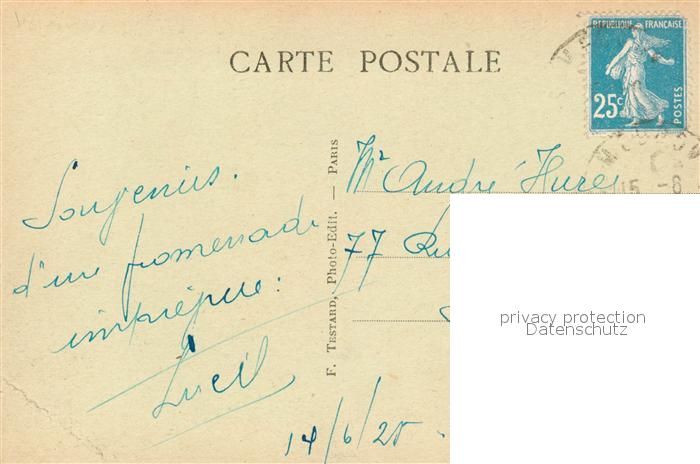 CARTE POSTALE
REPUBLIQUE FRANÇAISE
25c
POSTES
15 -6
F. TESTARD, Photo-Edit. — PARIS
Souvenirs.
d'une promenade
imprévue:
Lucil
14/6/25
Mr André Hure
77 Ru
privacy protection
Datenschutz